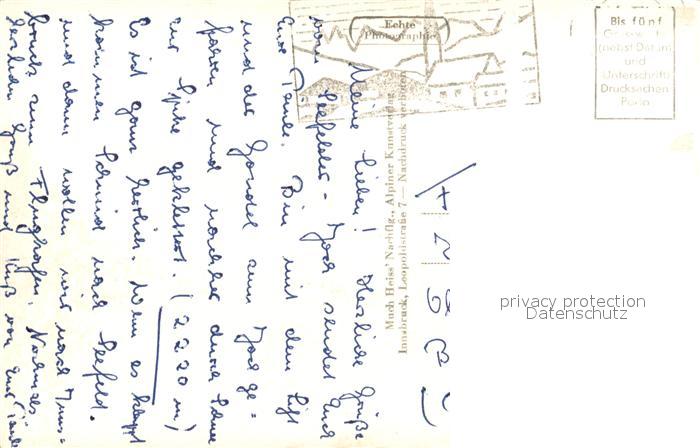 Meine Lieben! Herzliche Grüße
vom Seefelder-Joch sendet Euch
Eure Tante. Bin mit dem Lift
und der Gondel zum Joch ge=
fahren und nachher durch
zur Spitze geklettert. (2220 m)
Es ist ganz herrlich. Wenn es klappt
kommen nach Seefeld.
und dann wollen wir nach Inns=
bruck zum Flughafen. Nochmals
herzlichen Gruß und Kuß von Eurer Tante
Echte
Photographie
Much Heiss' Nachflg., Alpiner Kunstverlag
Innsbruck, Leopoldstraße 7. — Nachdruck verboten
Bis fünf
(nebst Datum
und
Unterschrift)
Drucksachen
Porto
privacy protection
Datenschutz